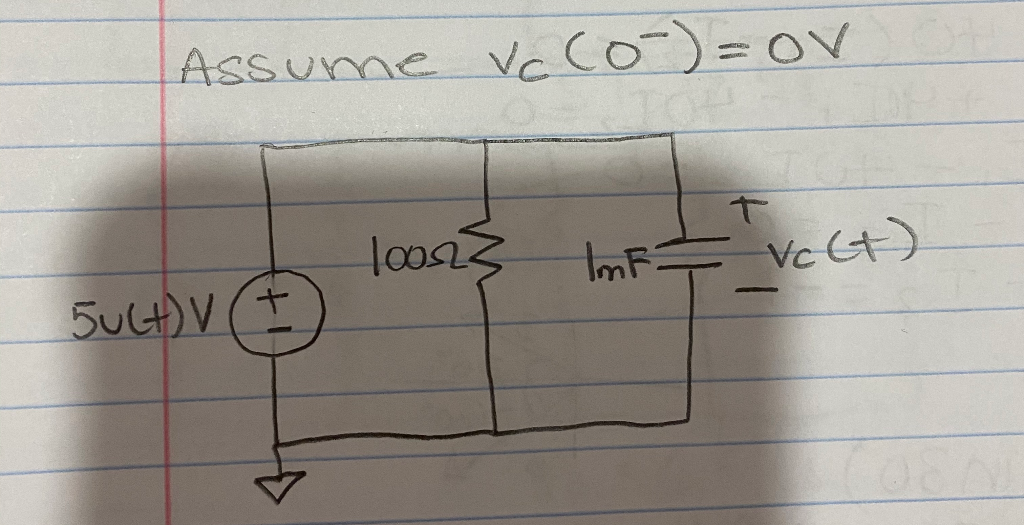 Assume vc(0⁻)=0V
100Ω
1mF
+
vc(t)
−
5u(t)V
+
−